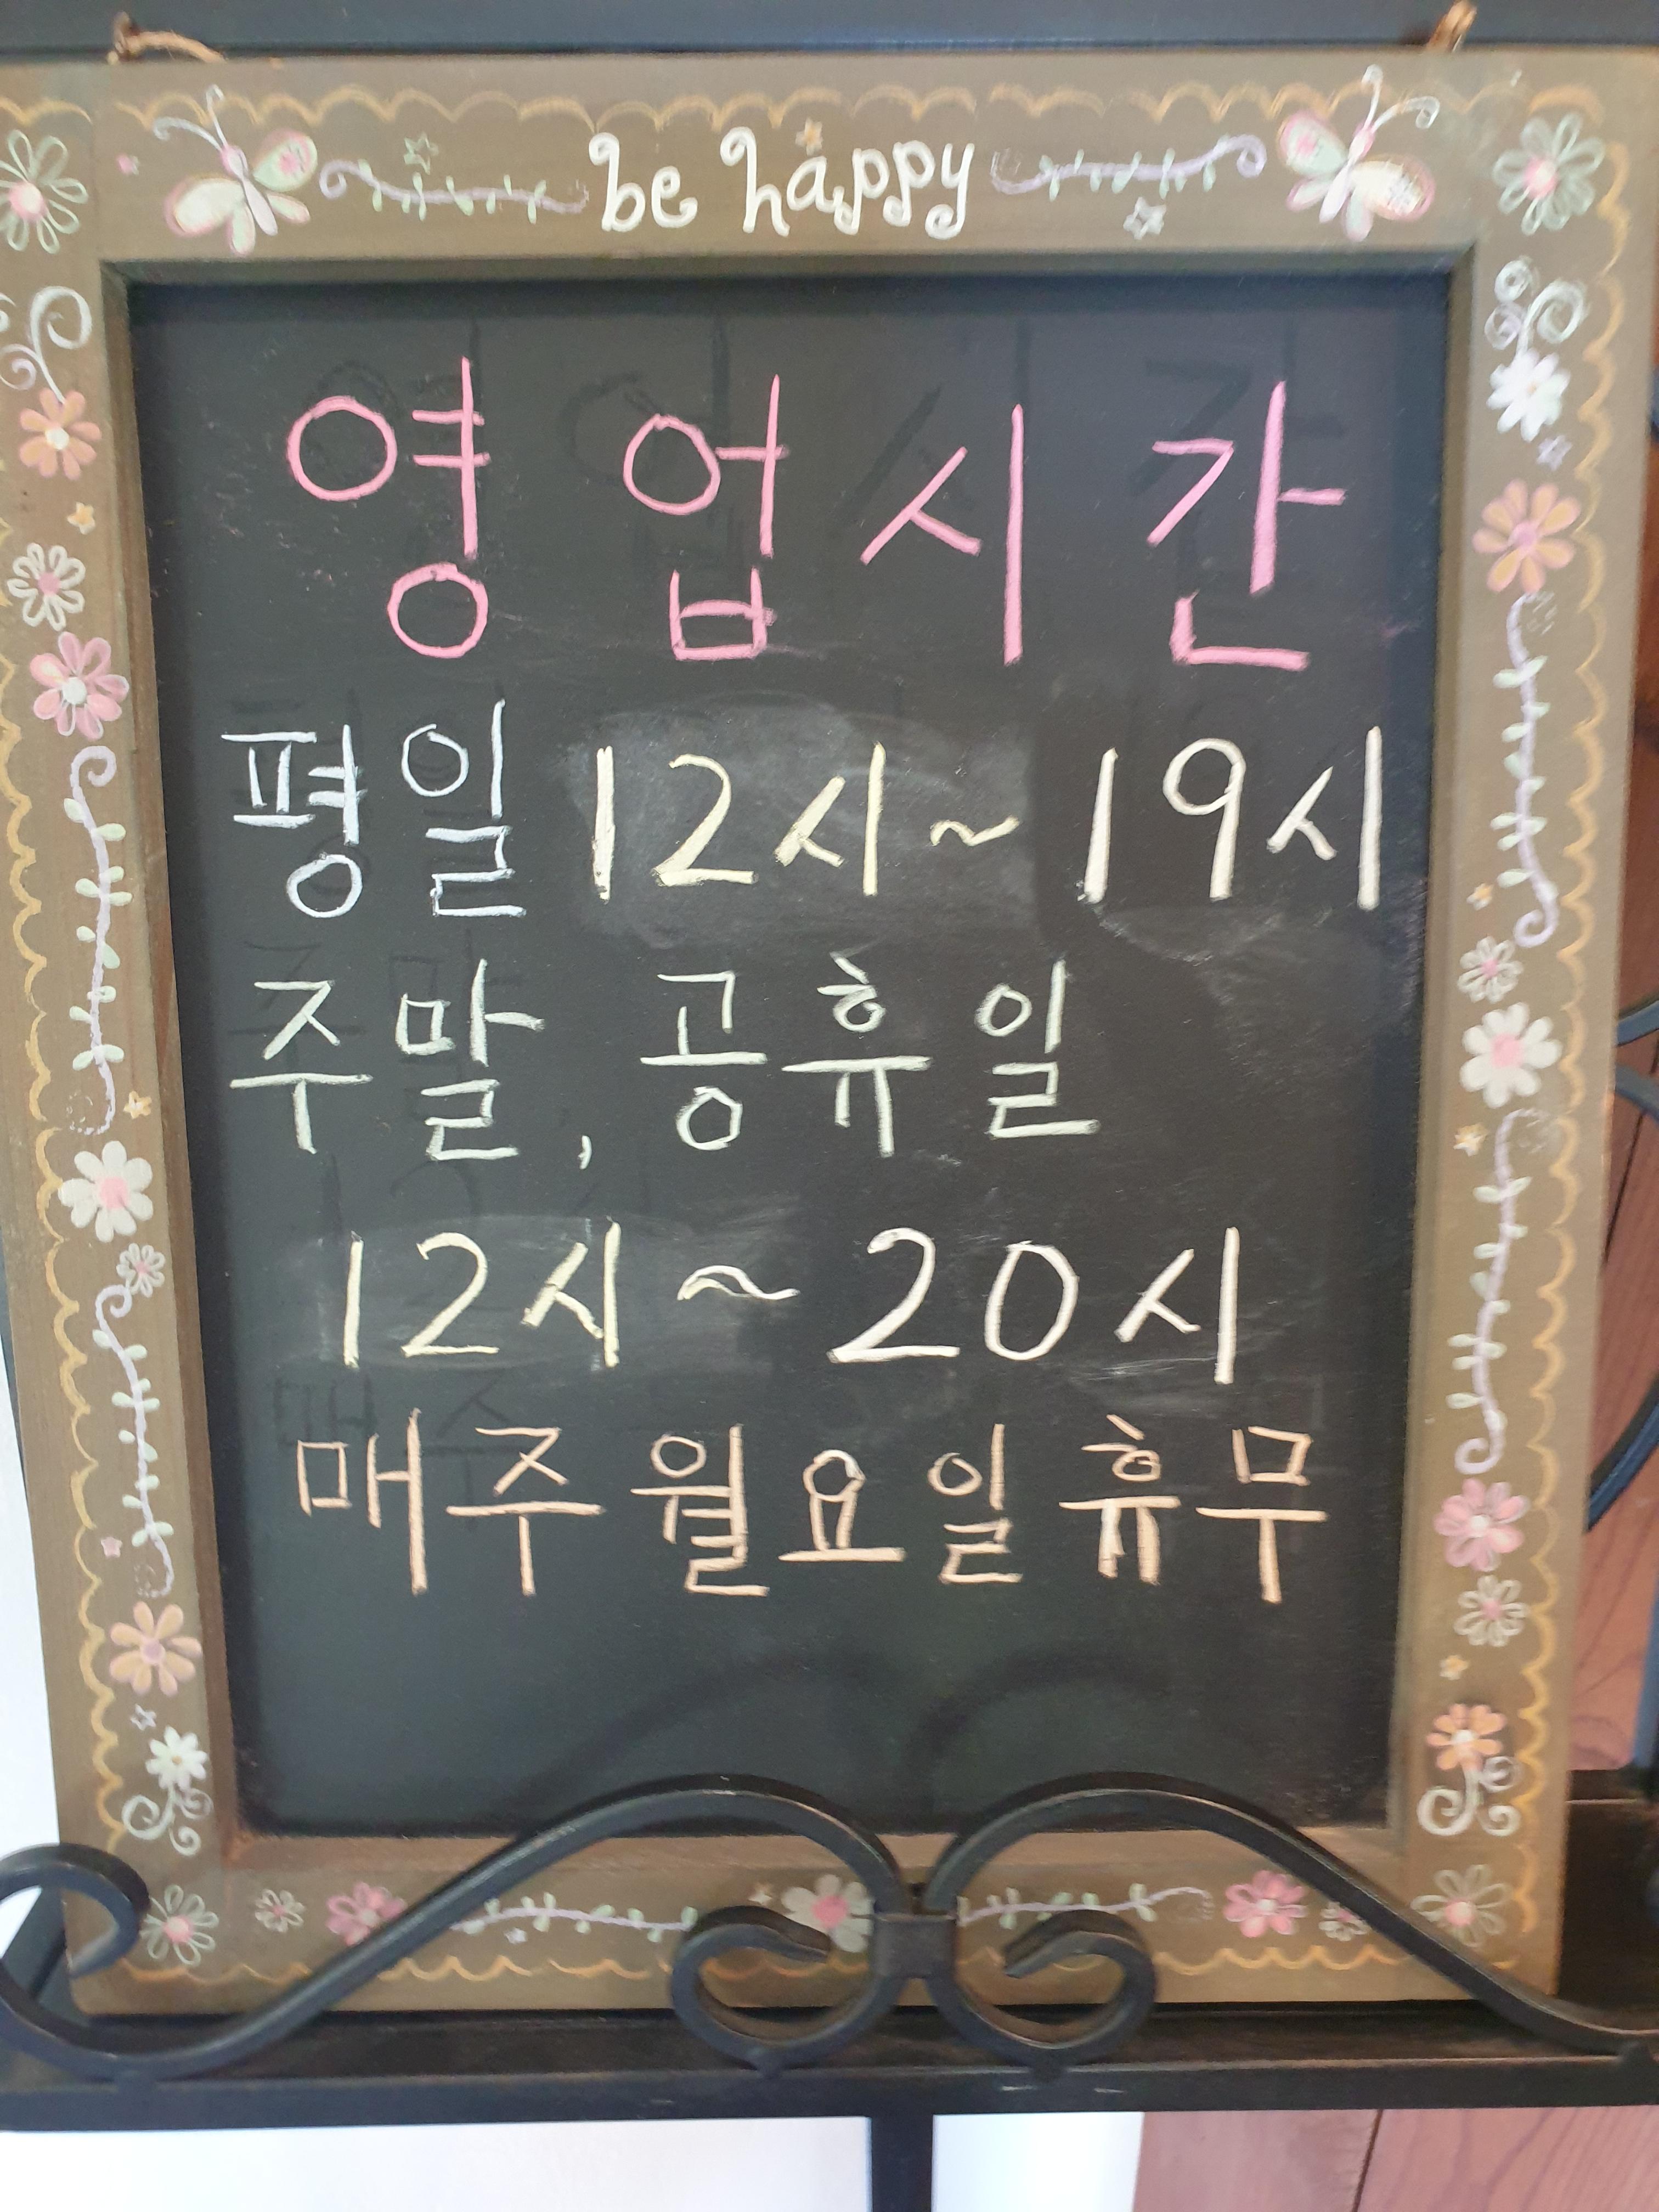 be happy
영업시간
평일 12시~19시
주말, 공휴일
12시~20시
매주 월요일 휴무